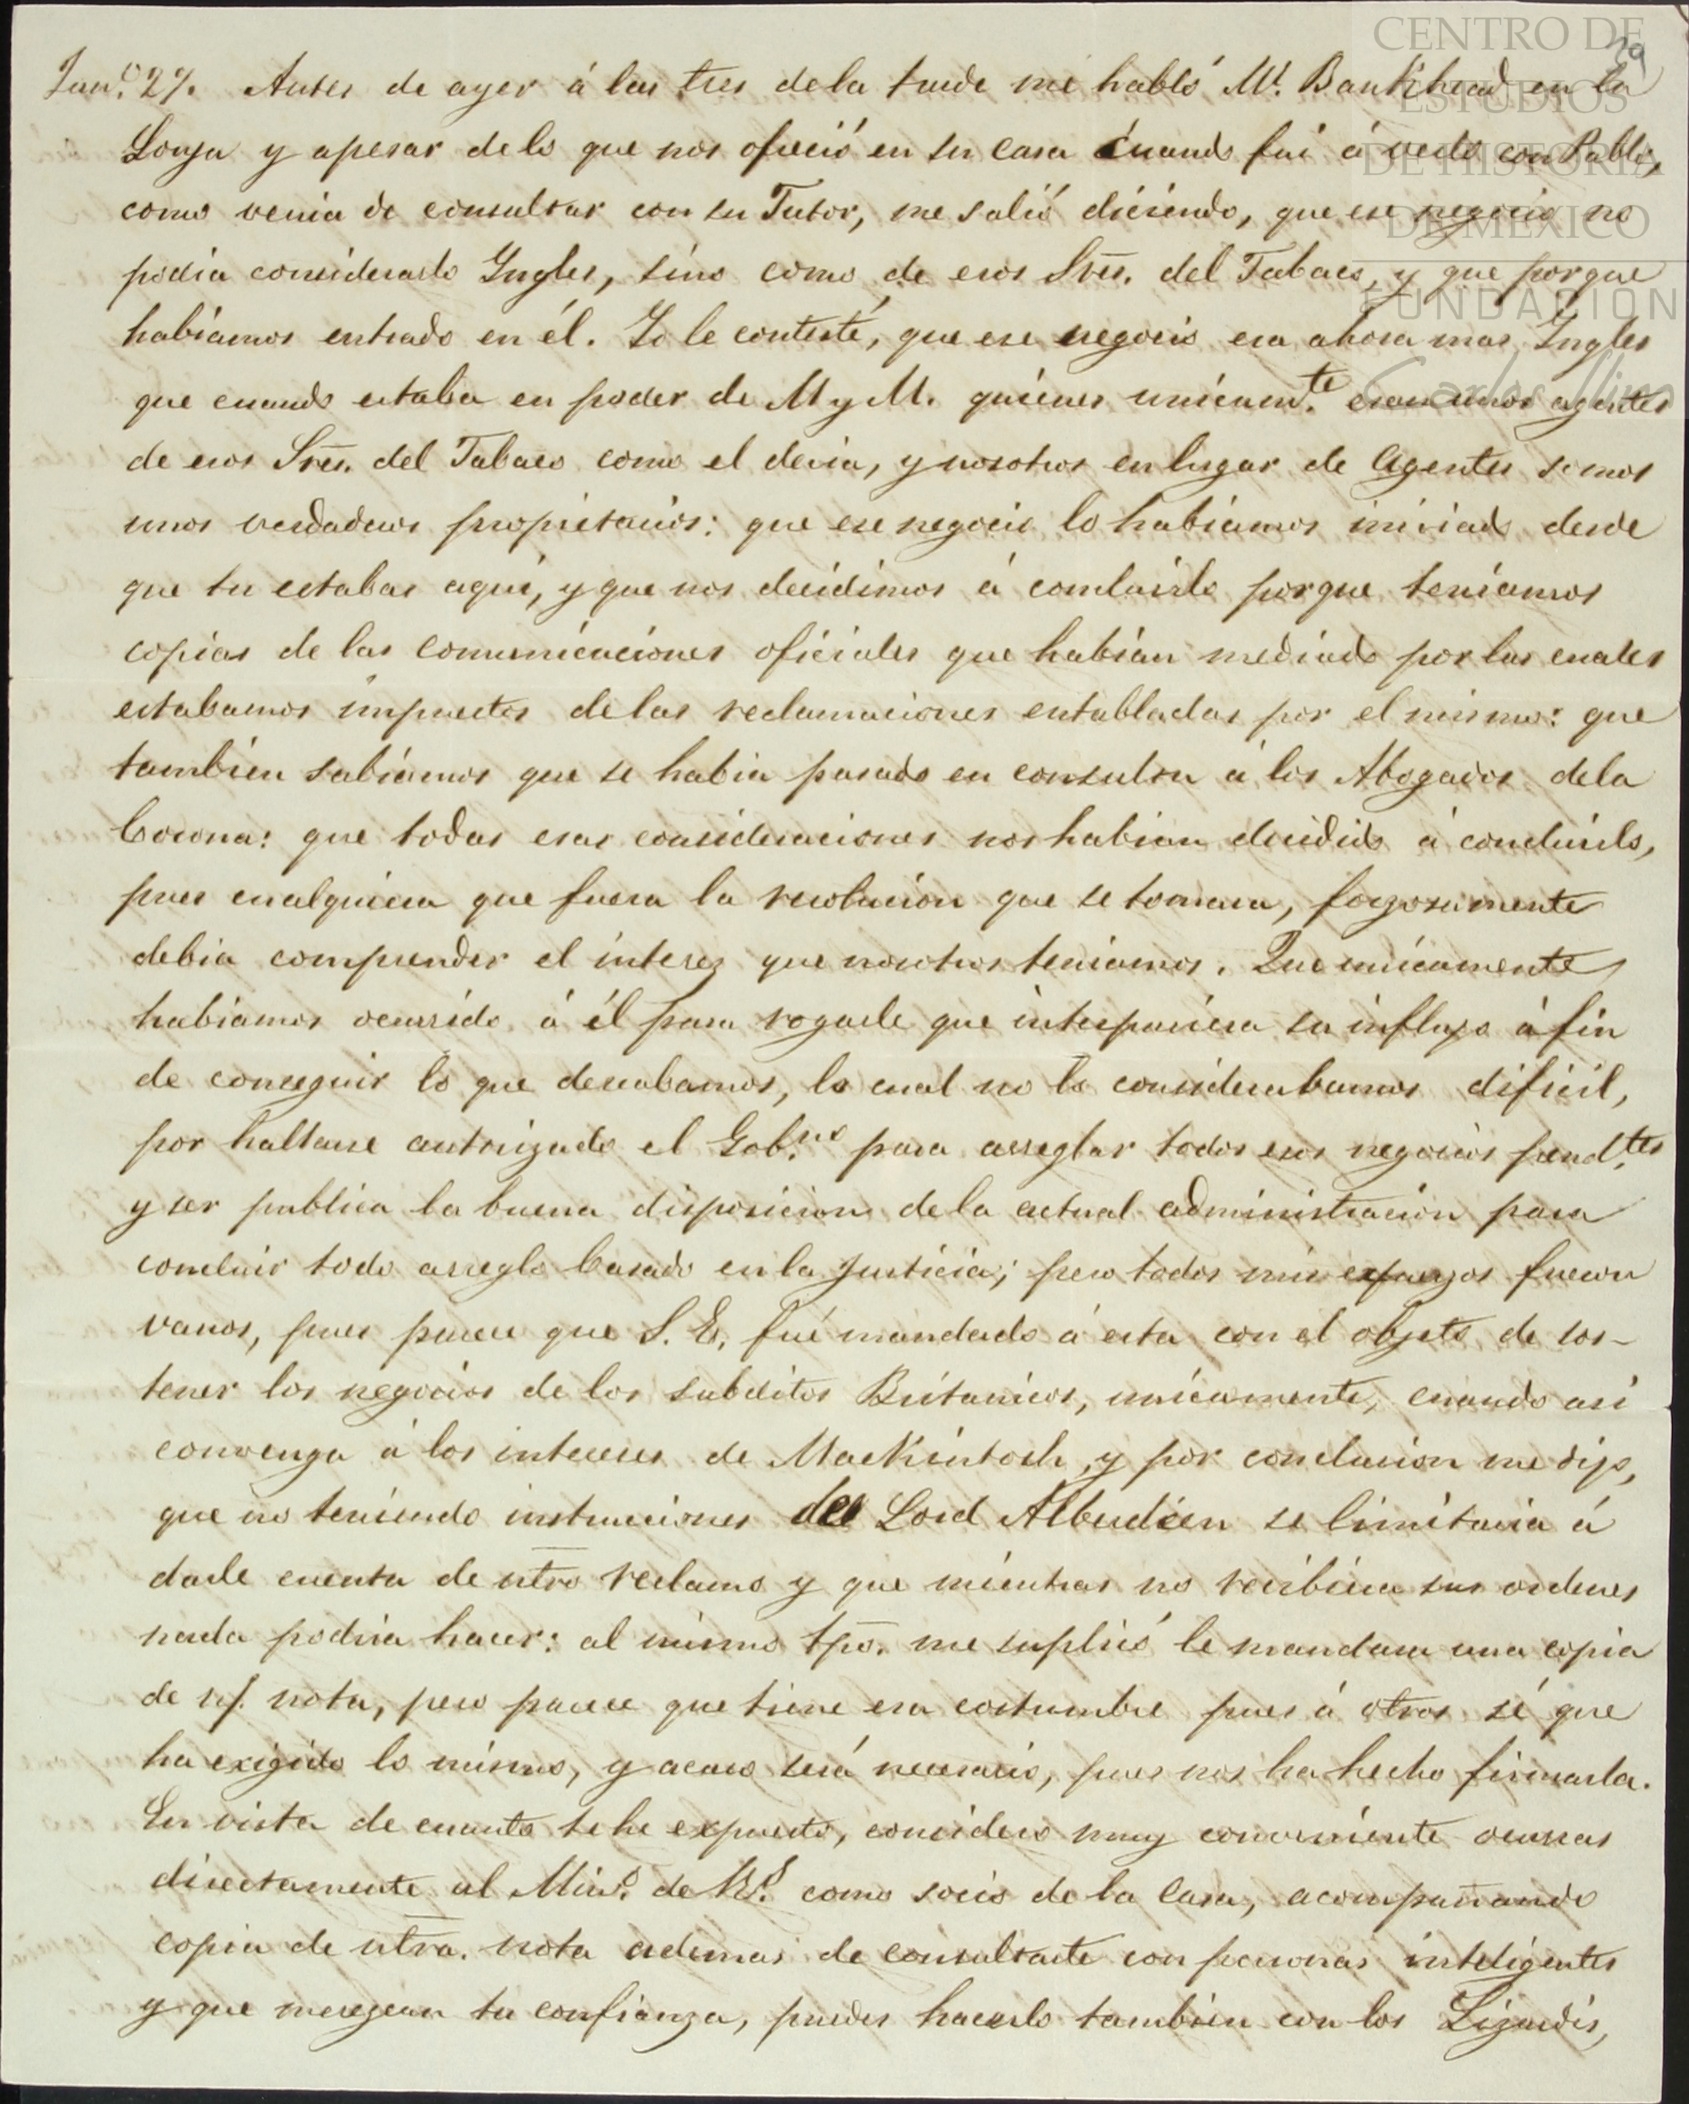 29
CENTRO DE
ESTUDIOS
DE HISTORIA
DE MEXICO
FUNDACION
Carlos Slim
Jun.º 27. Antes de ayer á las tres de la tarde me habló Mr. Bankhead en la
Lonja y apesar de lo que nos ofreció en su casa cuando fui á verlo con Pablo,
como venia de consultar con su Tutor, me salió diciendo, que ese negocio no
podia considerarlo Yngles, sino como de esos Sres. del Tabaco, y que porque
habiamos entrado en él. Yo le contesté, que ese negocio era ahora mas Yngles
que cuando estaba en poder de M y M. quienes unicam.te eran unos agentes
de esos Sres. del Tabaco como el decia, y nosotros en lugar de Agentes somos
unos verdaderos propietarios: que ese negocio lo habiamos iniciado desde
que tu estabas aqui, y que nos decidimos á concluirlo porque teniamos
copias de las comunicaciones oficiales que habian mediado por las cuales
estabamos impuestos de las reclamaciones entabladas por el mismo: que
tambien sabiamos que se habia pasado en consulta á los Abogados de la
Corona: que todas esas consideraciones nos habian decidido á concluirlo,
pues cualquiera que fuera la resolucion que se tomara, forzosamente
debia comprender el interez que nosotros teniamos. Que unicamente
habiamos ocurrido á él para rogarle que interpusiera su influjo á fin
de conseguir lo que deseabamos, lo cual no lo considerabamos dificil,
por hallarse autorizado el Gob.no para arreglar todos esos negocios pend.tes
y ser publica la buena disposicion de la actual administracion para
concluir todo arreglo basado en la Justicia; pero todos mis esfuerzos fueron
vanos, pues parece que S. E. fué mandado á esta con el objeto de sos-
tener los negocios de los subditos Britanicos, unicamente, cuando asi
convenga á los intereses de MacKintosh, y por conclusion me dijo,
que no teniendo instrucciones de Lord Alberdien se limitaria á
darle cuenta de ntro reclamo y que mientras no recibiera sus ordenes
nada podria hacer: al mismo tpo. me suplicó le mandara una copia
de nota, pero parece que tiene esa costumbre pues á otros sé que
ha exigido lo mismo, y acaso será necesario, pues nos ha hecho firmarla.
En vista de cuanto te he expuesto, considero muy conveniente ocurras
directamente al Min.º de como socio de la Casa, acompañando
copia de ntra. nota ademas de consultarte con personas inteligentes
y que merezcan tu confianza, puedes hacerlo tambien con los Lizardis,